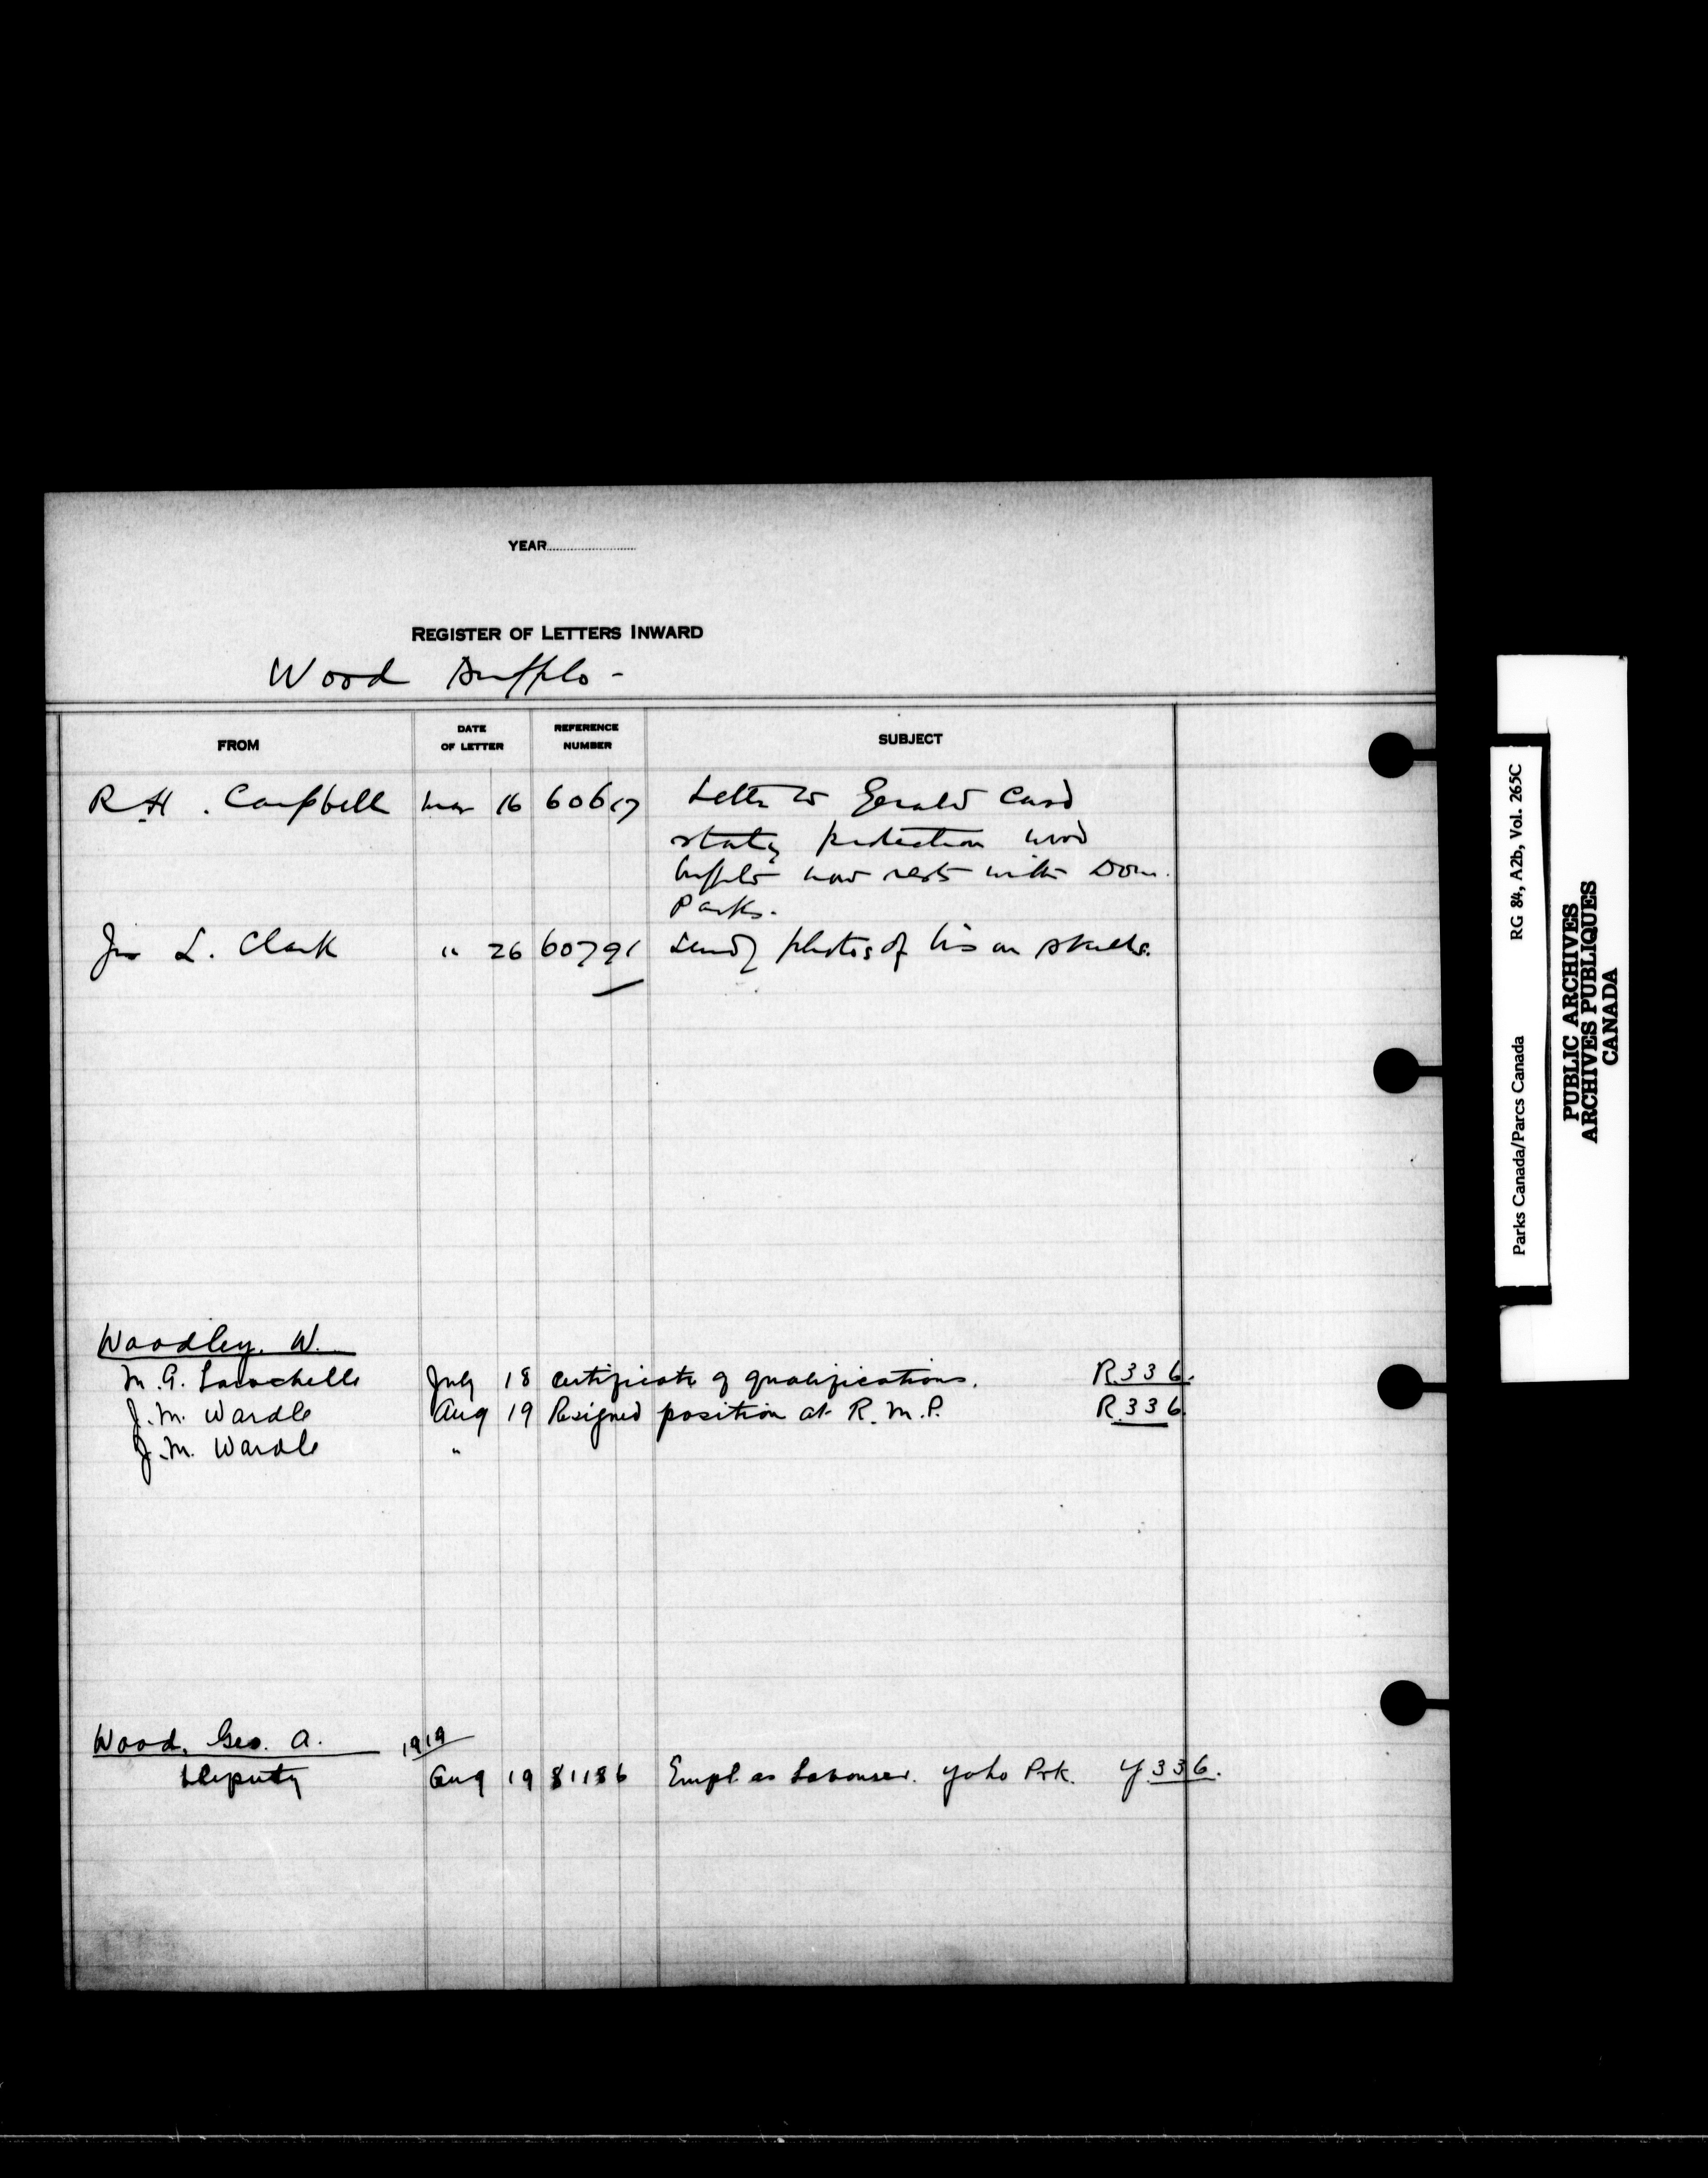 YEAR
REGISTER OF LETTERS INWARD
Wood Buffalo -
FROM DATE OF LETTER REFERENCE NUMBER SUBJECT
R. H. Campbell Mar 16 60617 Letter to Gerald Card
stating protection wood
buffalo now rests with Dom.
Parks.
Jas L. Clark " 26 60791 Sendg photos of bison skulls.
Woodley, W.
M. G. Larochelle July 18 certificate of qualifications. R.336.
J. M. Wardle Aug 19 Resigned position at R.M.P. R.336.
J. M. Wardle "
Wood, Geo. A. 1919
Deputy Aug 19 81186 Empl. as Labourer. Yoho Prk. Y.336.
Parks Canada/Parcs Canada RG 84, A2b, Vol. 265C
PUBLIC ARCHIVES
ARCHIVES PUBLIQUES
CANADA